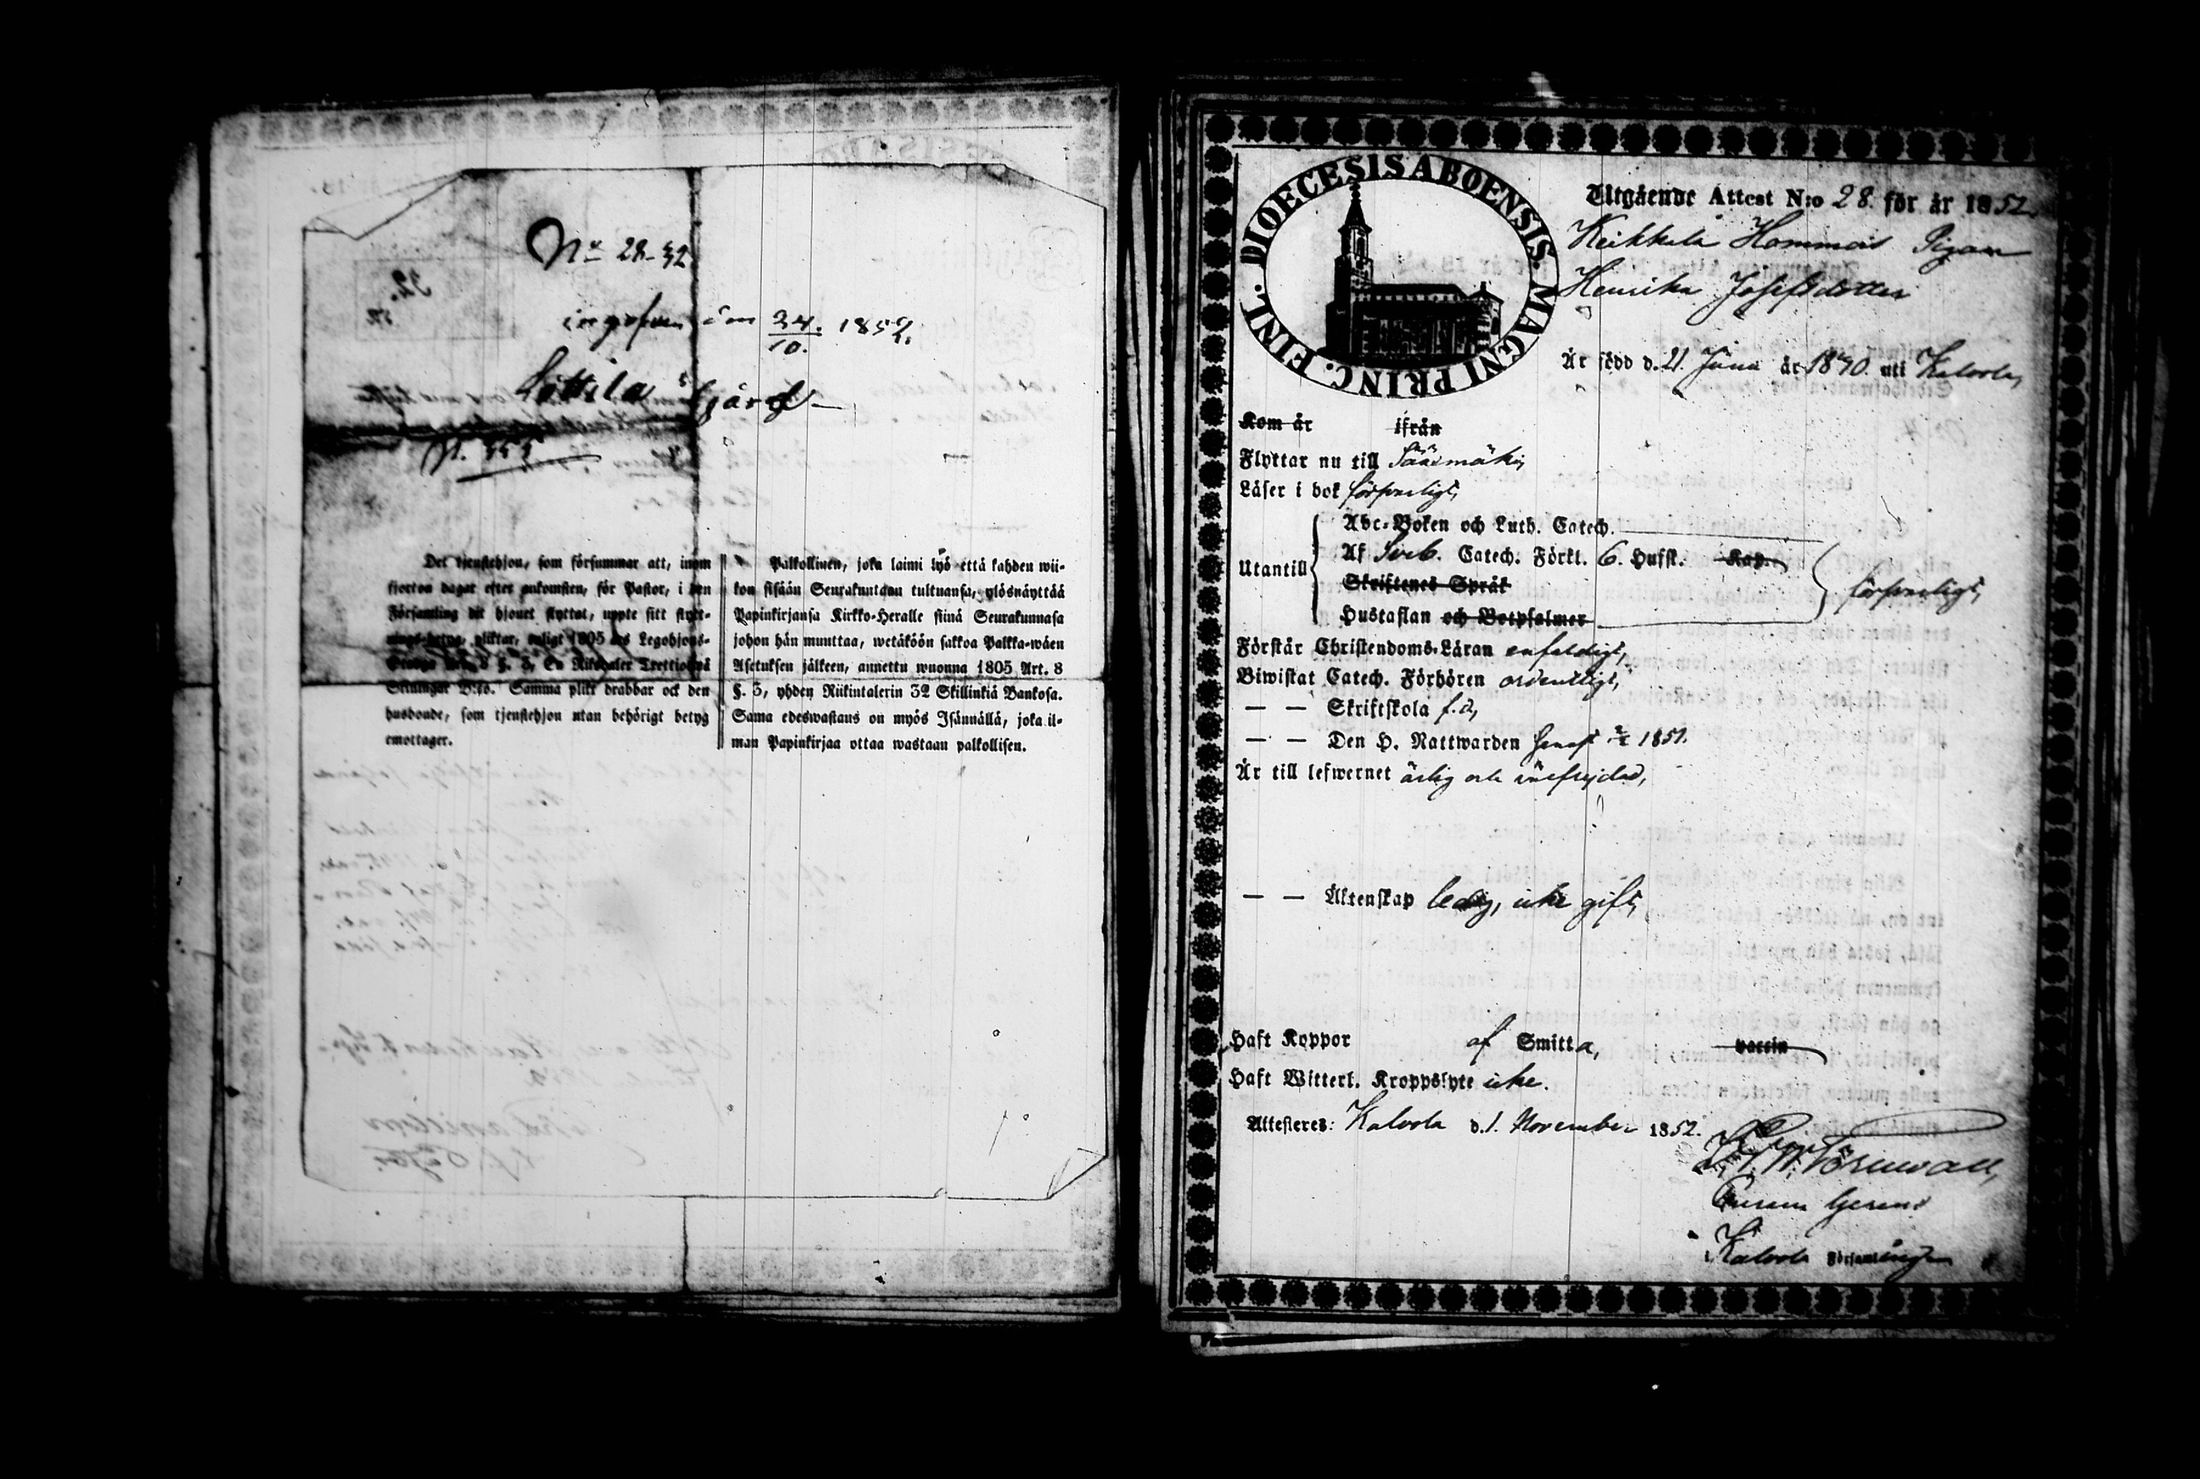 No 28-52
ingifven den 24/10. 1852.
Sottila
N. 555
Det tjenstehjon, som försummar att, inom
fjorton dagar efter ankomsten, för Pastor, i den
Församling dit hjonet flyttat, uppte sitt flytt-
nings-betyg, pliktar, enligt 1805 års Legohjons-
Stadga Art. 8 §. 3, En Riksdaler Trettiotvå
Skillingar B:co. Samma plikt drabbar ock den
husbonde, som tjenstehjon utan behörigt betyg
emottager.
Palkollinen, joka laimi lyö että kahden wii-
kon sisään Seurakuntaan tultuansa, ylösnäyttää
Papinkirjansa Kirkko-Heralle siinä Seurakunnasa
johon hän muuttaa, wetäköön sakkoa Palkka-wäen
Asetuksen jälkeen, annettu wuonna 1805 Art. 8
§. 3, yhden Riikintalerin 32 Skillinkiä Bankosa.
Sama edeswastaus on myös Isännällä, joka il-
man Papinkirjaa ottaa wastaan palkollisen.
DIOECESIS ABOENSIS. MAGNI PRINC. FINL.
Utgående Attest N:o 28 för år 1852.
Keikkala Hommais Pigan
Henrika Josefsdotter
Är född d. 21 Junii år 1840 uti Kalvola,
Kom år ifrån
Flyttar nu till Sääxmäki,
Läser i bok försvarligt,
Utantill
Abc-Boken och Luth. Catech.
Af Sveb. Catech. Förkl. 6. Hufst. Kap.
Skriftenes Språk
Hustaflan och Botpsalmer
försvarligt,
Förstår Christendoms-Läran enfaldigt,
Biwistat Catech. Förhören ordentligt,
— — Skriftskola f. å,
— — Den H. Nattwarden 1852.
Är till lefwernet ärlig och välfrejdad,
— — Äktenskap ledig, icke gift,
Haft Koppor af Smitta, vaccin
Haft Witterl. Kroppslyte icke.
Attesteres: Kalvola d. 1. November 1852.
Curam Gerens
i Kalvola Församling